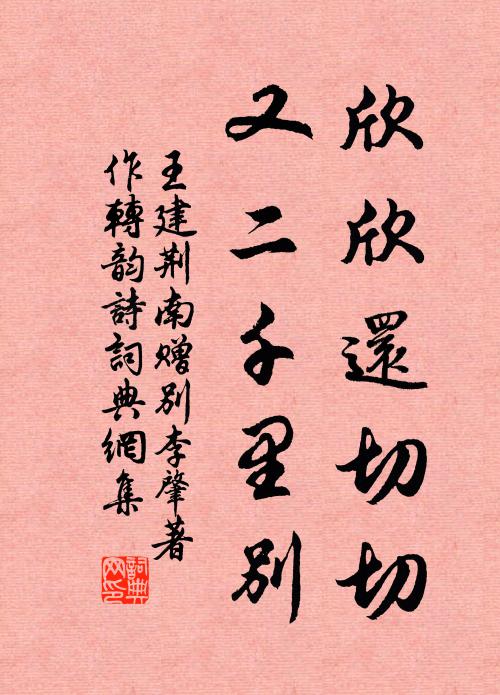 欣欣還切切
又二千里別
王建荆南贈別李肇著
作轉韵詩詞典網集
詞典
网印